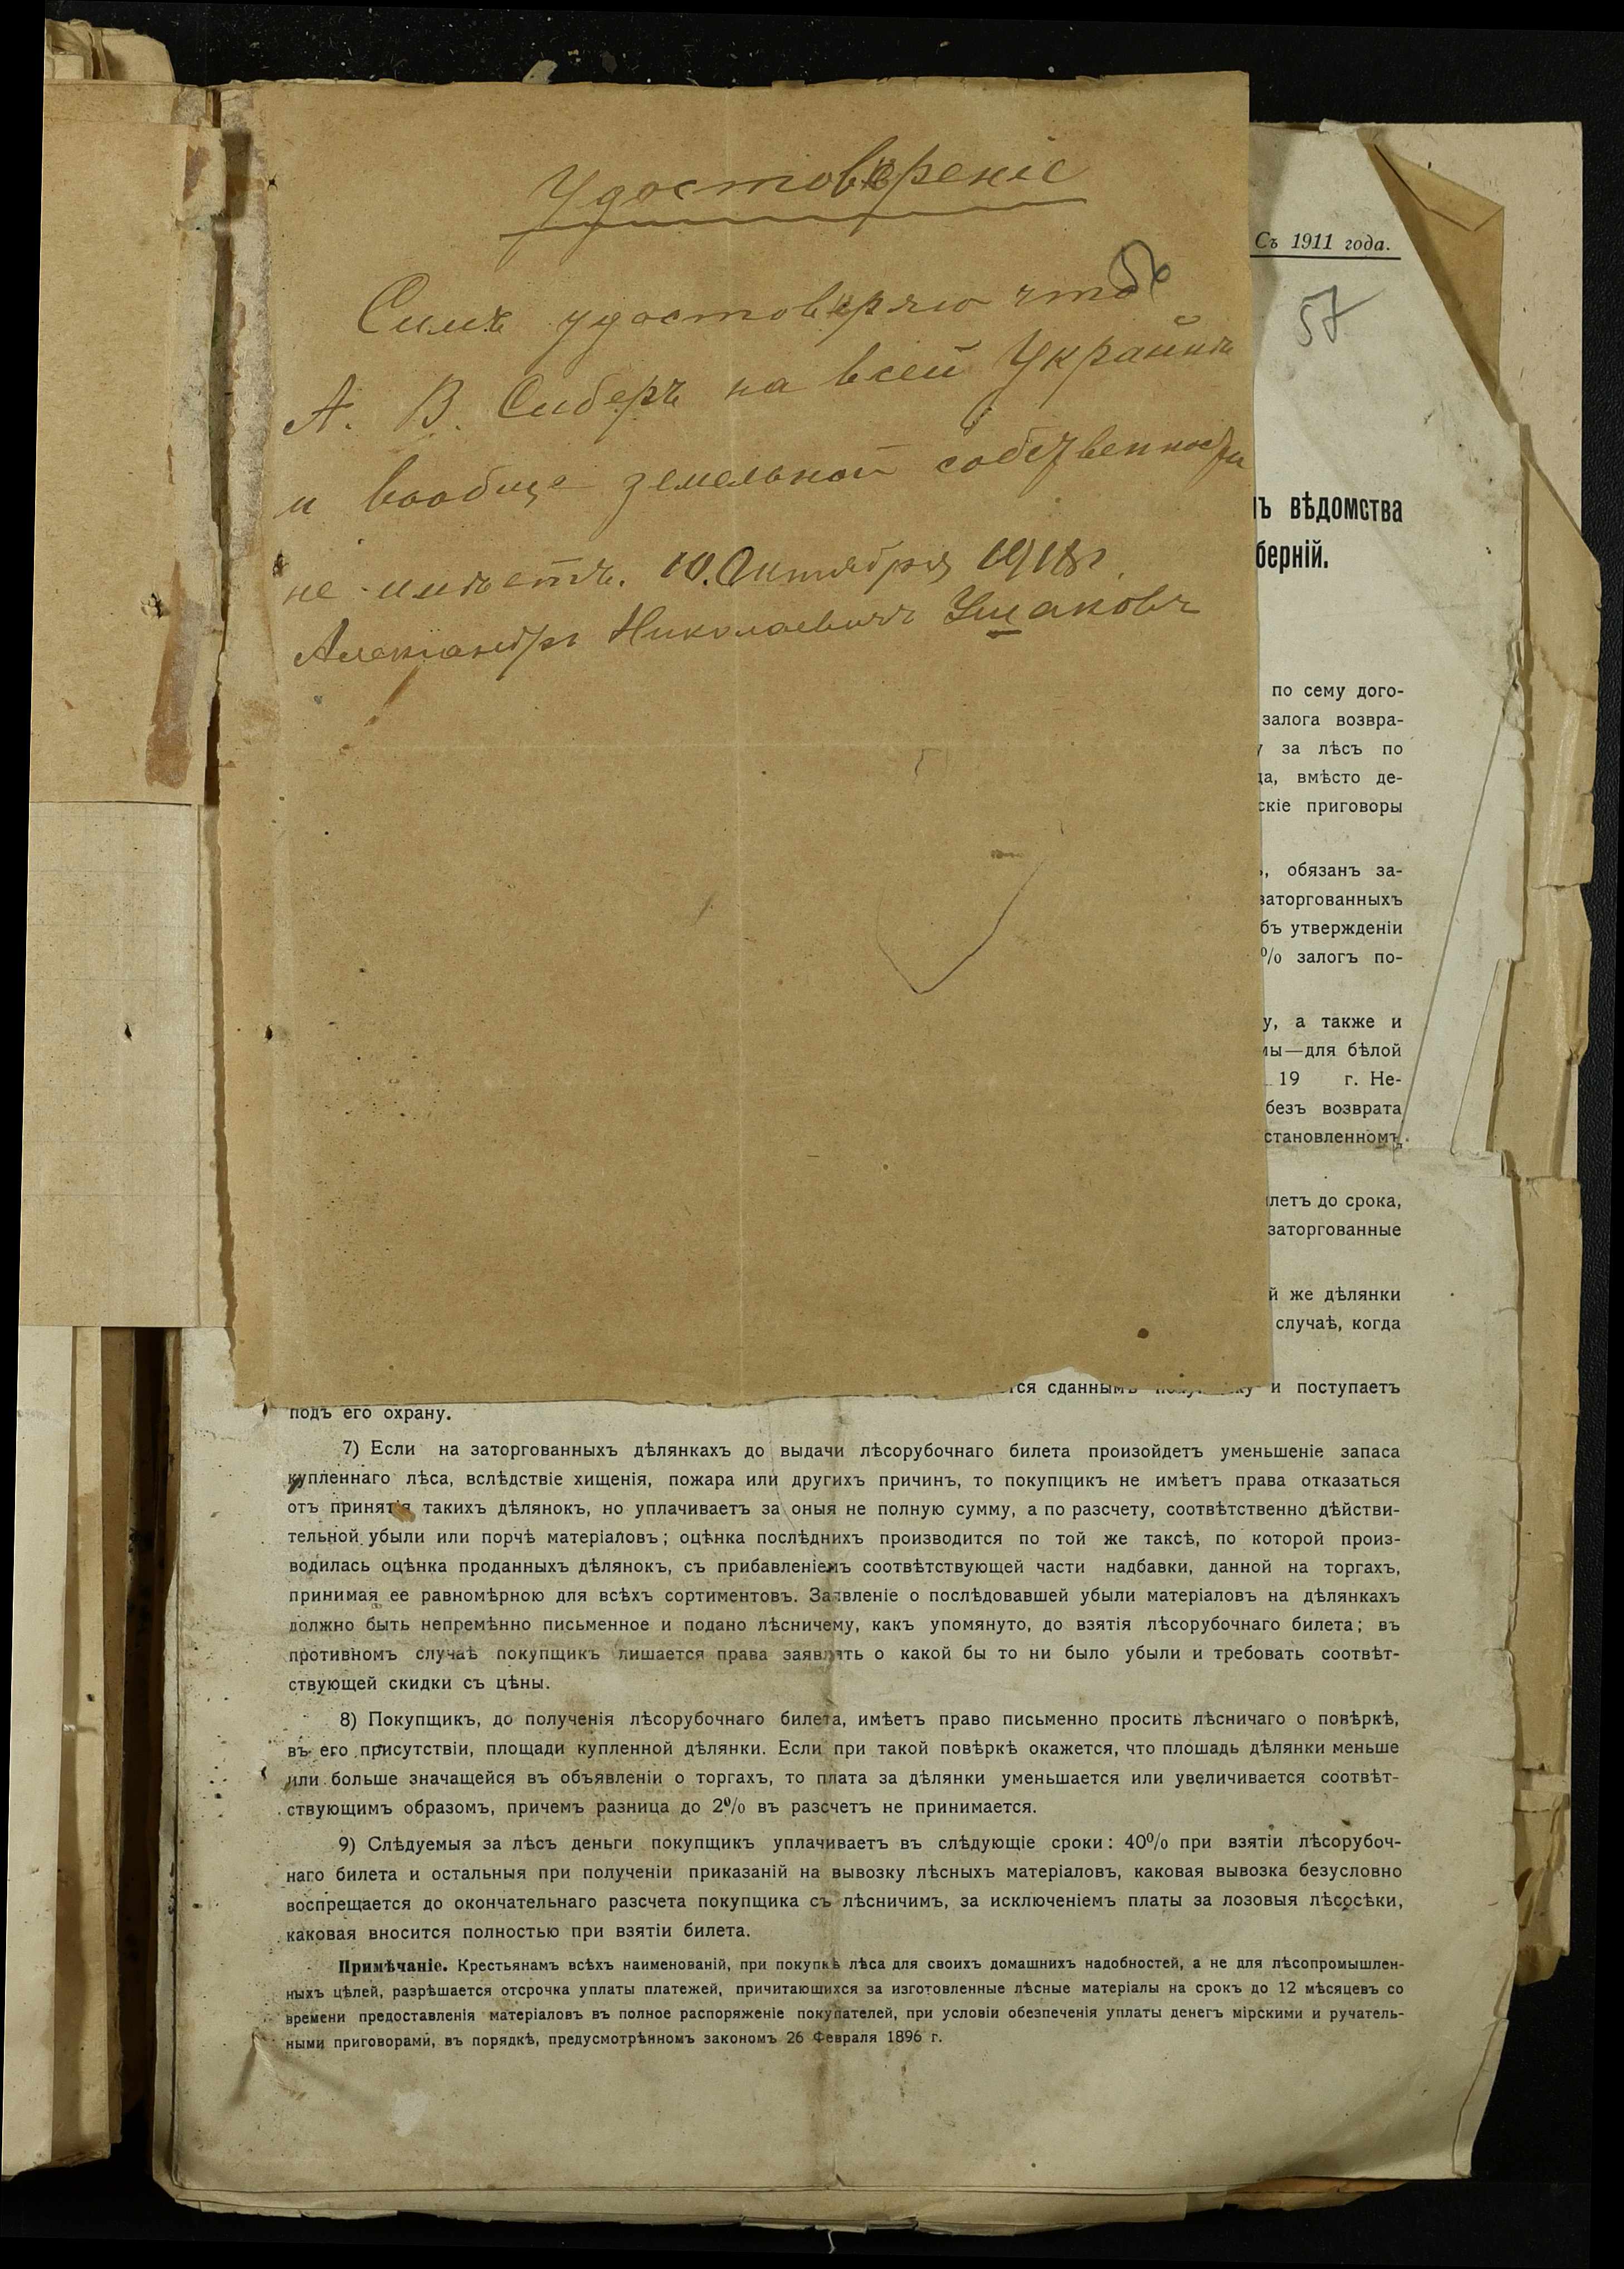 Удостовѣреніе
56
Симъ удостовѣряю что
А. В. Сиберъ на всей Украйнѣ
и вообще земельной собственности
не имѣетъ. 10. Октября 1918 г.
Александръ Николаевичъ Ушаковъ
Съ 1911 года.
57
ъ вѣдомства
берній.
по сему дого-
залога возвра-
за лѣсъ по
да, вмѣсто де-
скіе приговоры
, обязанъ за-
заторгованныхъ
бъ утвержденіи
% залогъ по-
у, а также и
мы—для бѣлой
19 г. Не-
безъ возврата
становленномъ
летъ до срока,
заторгованные
й же дѣлянки
случаѣ, когда
тся сданнымъ покупщику и поступаетъ
подъ его охрану.
7) Если на заторгованныхъ дѣлянкахъ до выдачи лѣсорубочнаго билета произойдетъ уменьшеніе запаса
купленнаго лѣса, вслѣдствіе хищенія, пожара или другихъ причинъ, то покупщикъ не имѣетъ права отказаться
отъ принятія такихъ дѣлянокъ, но уплачиваетъ за оныя не полную сумму, а по разсчету, соотвѣтственно дѣйстви-
тельной убыли или порчѣ матеріаловъ; оцѣнка послѣднихъ производится по той же таксѣ, по которой произ-
водилась оцѣнка проданныхъ дѣлянокъ, съ прибавленіемъ соотвѣтствующей части надбавки, данной на торгахъ,
принимая ее равномѣрною для всѣхъ сортиментовъ. Заявленіе о послѣдовавшей убыли матеріаловъ на дѣлянкахъ
должно быть непремѣнно письменное и подано лѣсничему, какъ упомянуто, до взятія лѣсорубочнаго билета; въ
противномъ случаѣ покупщикъ лишается права заявлять о какой бы то ни было убыли и требовать соотвѣт-
ствующей скидки съ цѣны.
8) Покупщикъ, до полученія лѣсорубочнаго билета, имѣетъ право письменно просить лѣсничаго о повѣркѣ,
въ его присутствіи, площади купленной дѣлянки. Если при такой повѣркѣ окажется, что площадь дѣлянки меньше
или больше значащейся въ объявленіи о торгахъ, то плата за дѣлянки уменьшается или увеличивается соотвѣт-
ствующимъ образомъ, причемъ разница до 2% въ разсчетъ не принимается.
9) Слѣдуемыя за лѣсъ деньги покупщикъ уплачиваетъ въ слѣдующіе сроки: 40% при взятіи лѣсорубоч-
наго билета и остальныя при полученіи приказаній на вывозку лѣсныхъ матеріаловъ, каковая вывозка безусловно
воспрещается до окончательнаго разсчета покупщика съ лѣсничимъ, за исключеніемъ платы за лозовыя лѣсосѣки,
каковая вносится полностью при взятіи билета.
Примѣчаніе. Крестьянамъ всѣхъ наименованій, при покупкѣ лѣса для своихъ домашнихъ надобностей, а не для лѣсопромышлен-
ныхъ цѣлей, разрѣшается отсрочка уплаты платежей, причитающихся за изготовленные лѣсные матеріалы на срокъ до 12 мѣсяцевъ со
времени предоставленія матеріаловъ въ полное распоряженіе покупателей, при условіи обезпеченія уплаты денегъ мірскими и ручатель-
ными приговорами, въ порядкѣ, предусмотрѣнномъ закономъ 26 Февраля 1896 г.